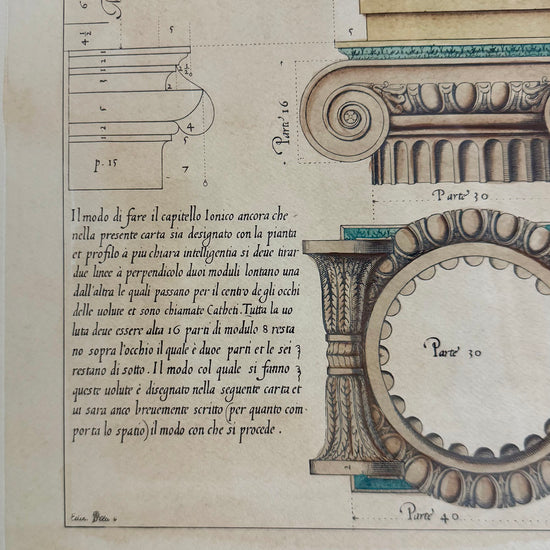 6
4 ½
5
1
2
1
3
2 ½
2
5
4
1
2
5
p. 15
7
Parte 16
Parte 30
Il modo di fare il capitello Ionico ancora che
nella presente carta sia designato con la pianta
et profilo à piu chiara intelligentia si deue tirar
due linee à perpendicolo duoi moduli lontano una
dall'altra le quali passano per il centro degli occhi
delle uolute et sono chiamate Catheti. Tutta la uo
luta deue essere alta 16 parti di modulo 8 resta
no sopra l'occhio il quale è duoe parti et le sei
restano di sotto. Il modo col quale si fanno
queste uolute è disegnato nella seguente carta et
ui sara anco breuemente scritto (per quanto com-
porta lo spatio) il modo con che si procede.
Parte 30
Parte 40